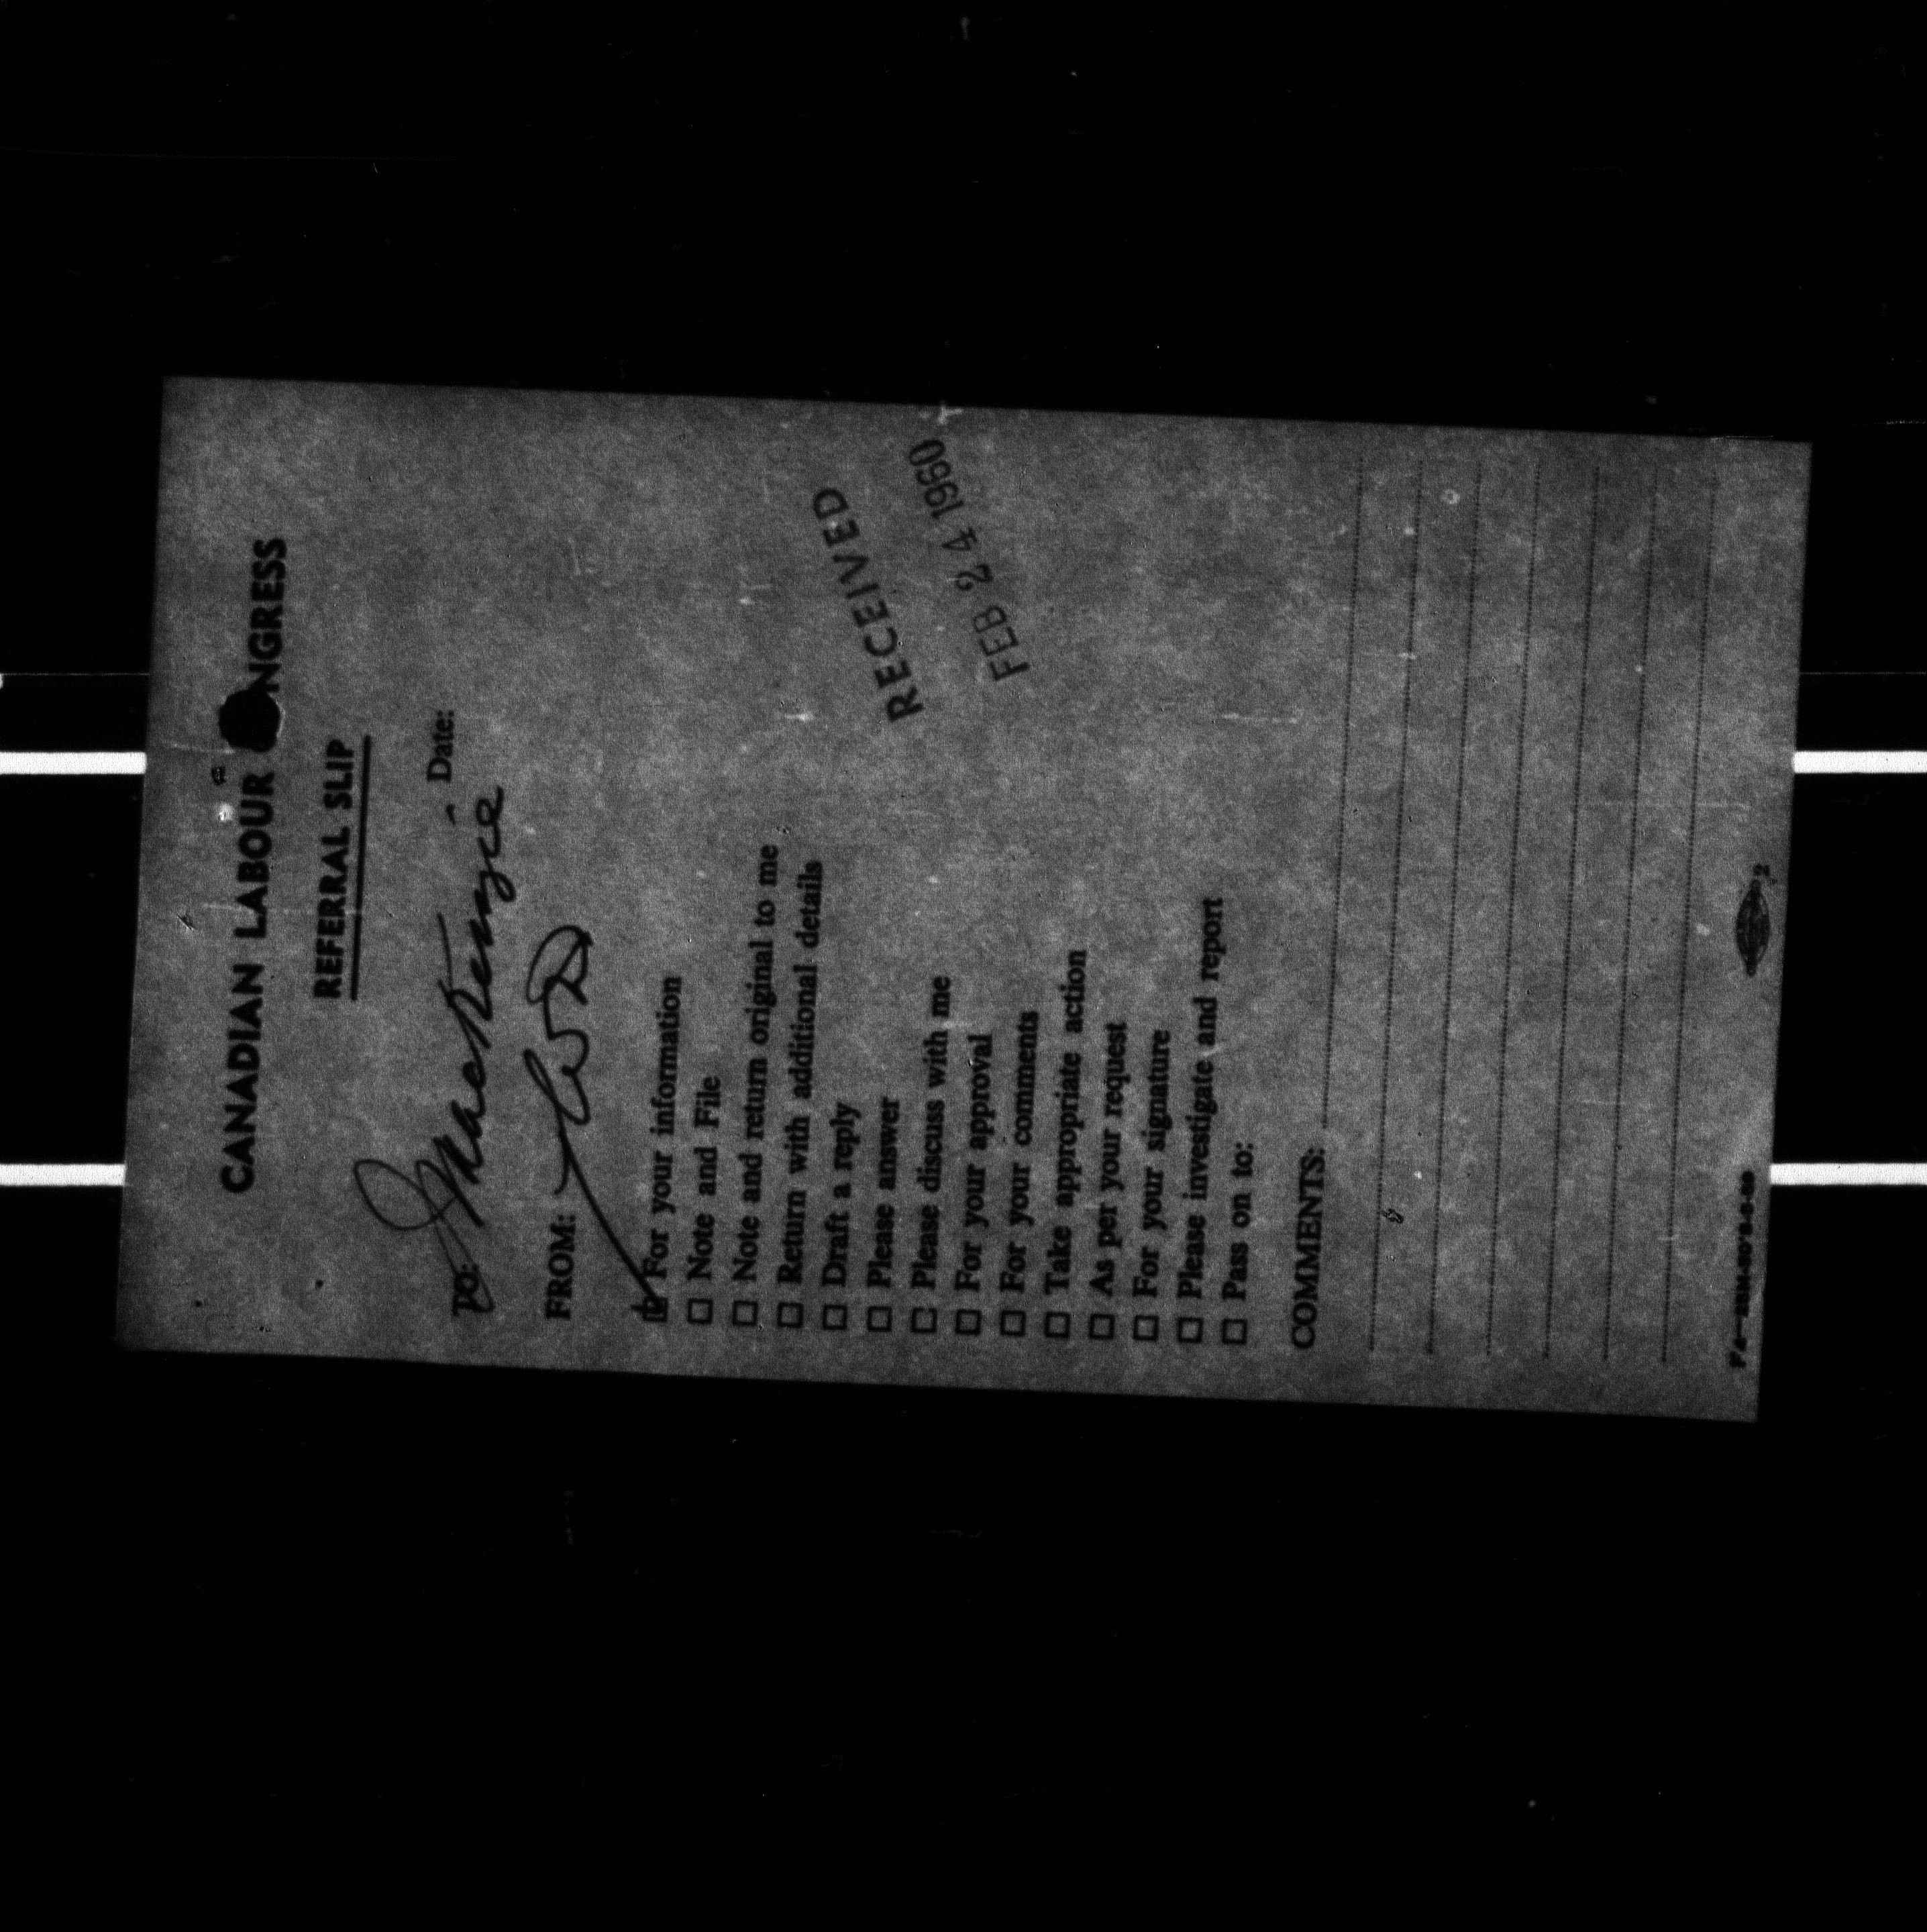 CANADIAN LABOUR CONGRESS
REFERRAL SLIP
TO: J MacKenzie Date:
FROM:
For your information
Note and File
Note and return original to me
Return with additional details
Draft a reply
Please answer
Please discuss with me
For your approval
For your comments
Take appropriate action
As per your request
For your signature
Please investigate and report
Pass on to:
RECEIVED
FEB 24 1960
COMMENTS:
2